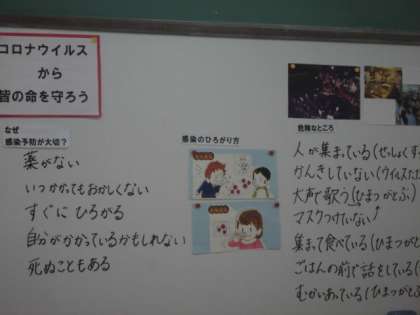 コロナウイルス
から
皆の命を守ろう
なぜ
感染予防が大切?
薬がない
いつかかってもおかしくない
すぐに ひろがる
自分がかかっているかもしれない
死ぬこともある
感染のひろがり方
危険なところ
人が集まっている(せっしょくす
かんきしていない(ウイルスた
大声で歌う(ひまつがとぶ)
マスクつけていない
集まって食べている(ひまつがと
ごはんの前で話をしている(
むかいあっている(ひまつがとぶ